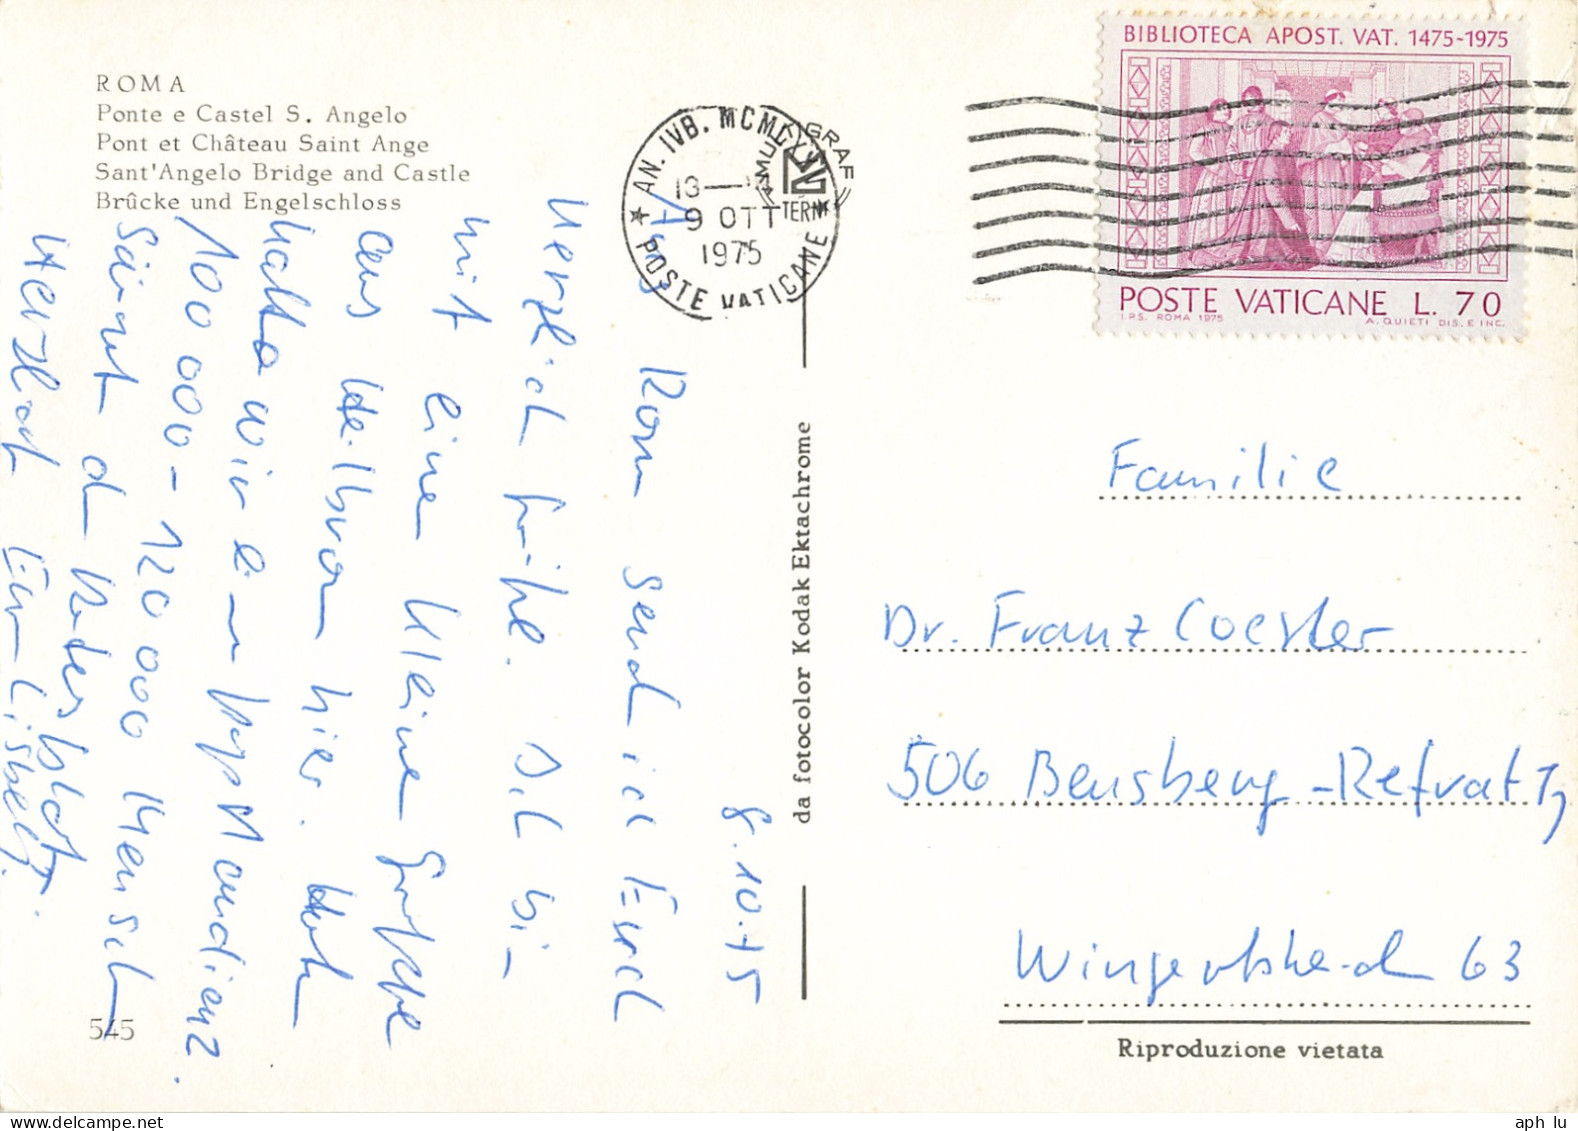 ROMA
Ponte e Castel S. Angelo
Pont et Château Saint Ange
Sant'Angelo Bridge and Castle
Brûcke und Engelschloss
AN. IVB. MCMLXXV
13—
9 OTT
1975
POSTE VATICANE
BIBLIOTECA APOST. VAT. 1475-1975
POSTE VATICANE L. 70
I.P.S. ROMA 1975 A. QUIETI DIS. E INC.
8.10.75
Aus Rom send ich Euch
herzlich Grüße. Ich bin
mit einer kleinen Gruppe
aus hier. Heute
hatten wir eine Papstaudienz.
100 000 - 120 000 Mensch
Säumt d Petersplatz.
Herzlich Eur Lisbeth.
da fotocolor Kodak Ektachrome
Familie
Dr. Franz Coester
506 Bensberg-Refrath
Wingertsheide 63
545
Riproduzione vietata
aph lu